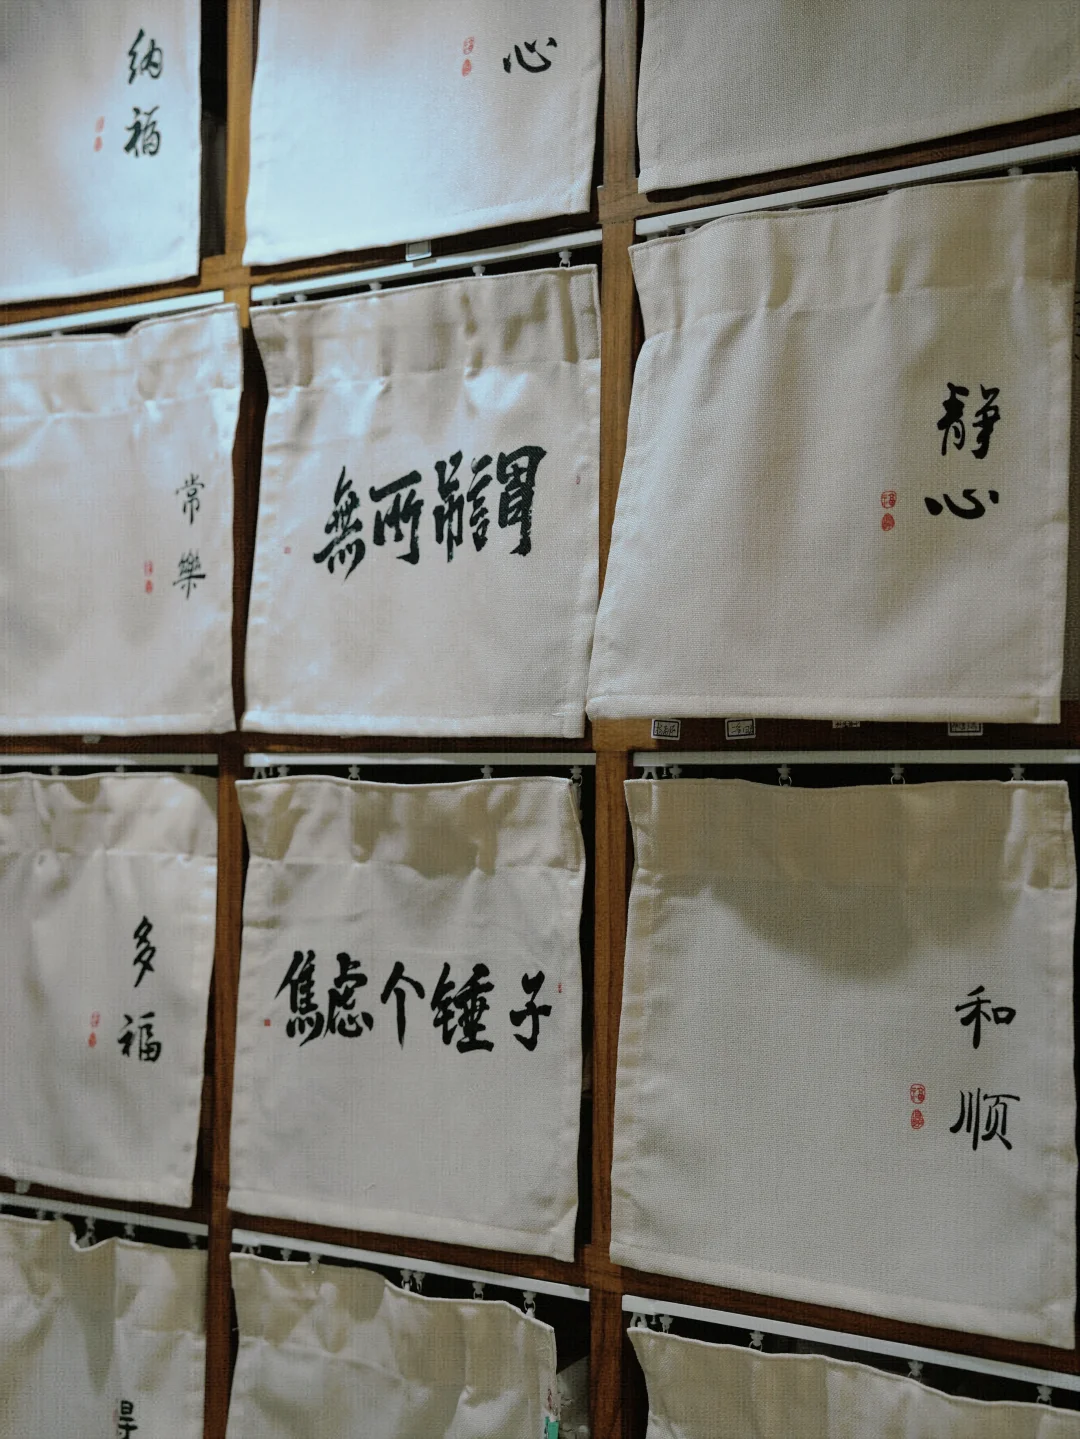 纳福
心
常樂
無所吊謂
静心
多福
焦虑个锤子
和顺